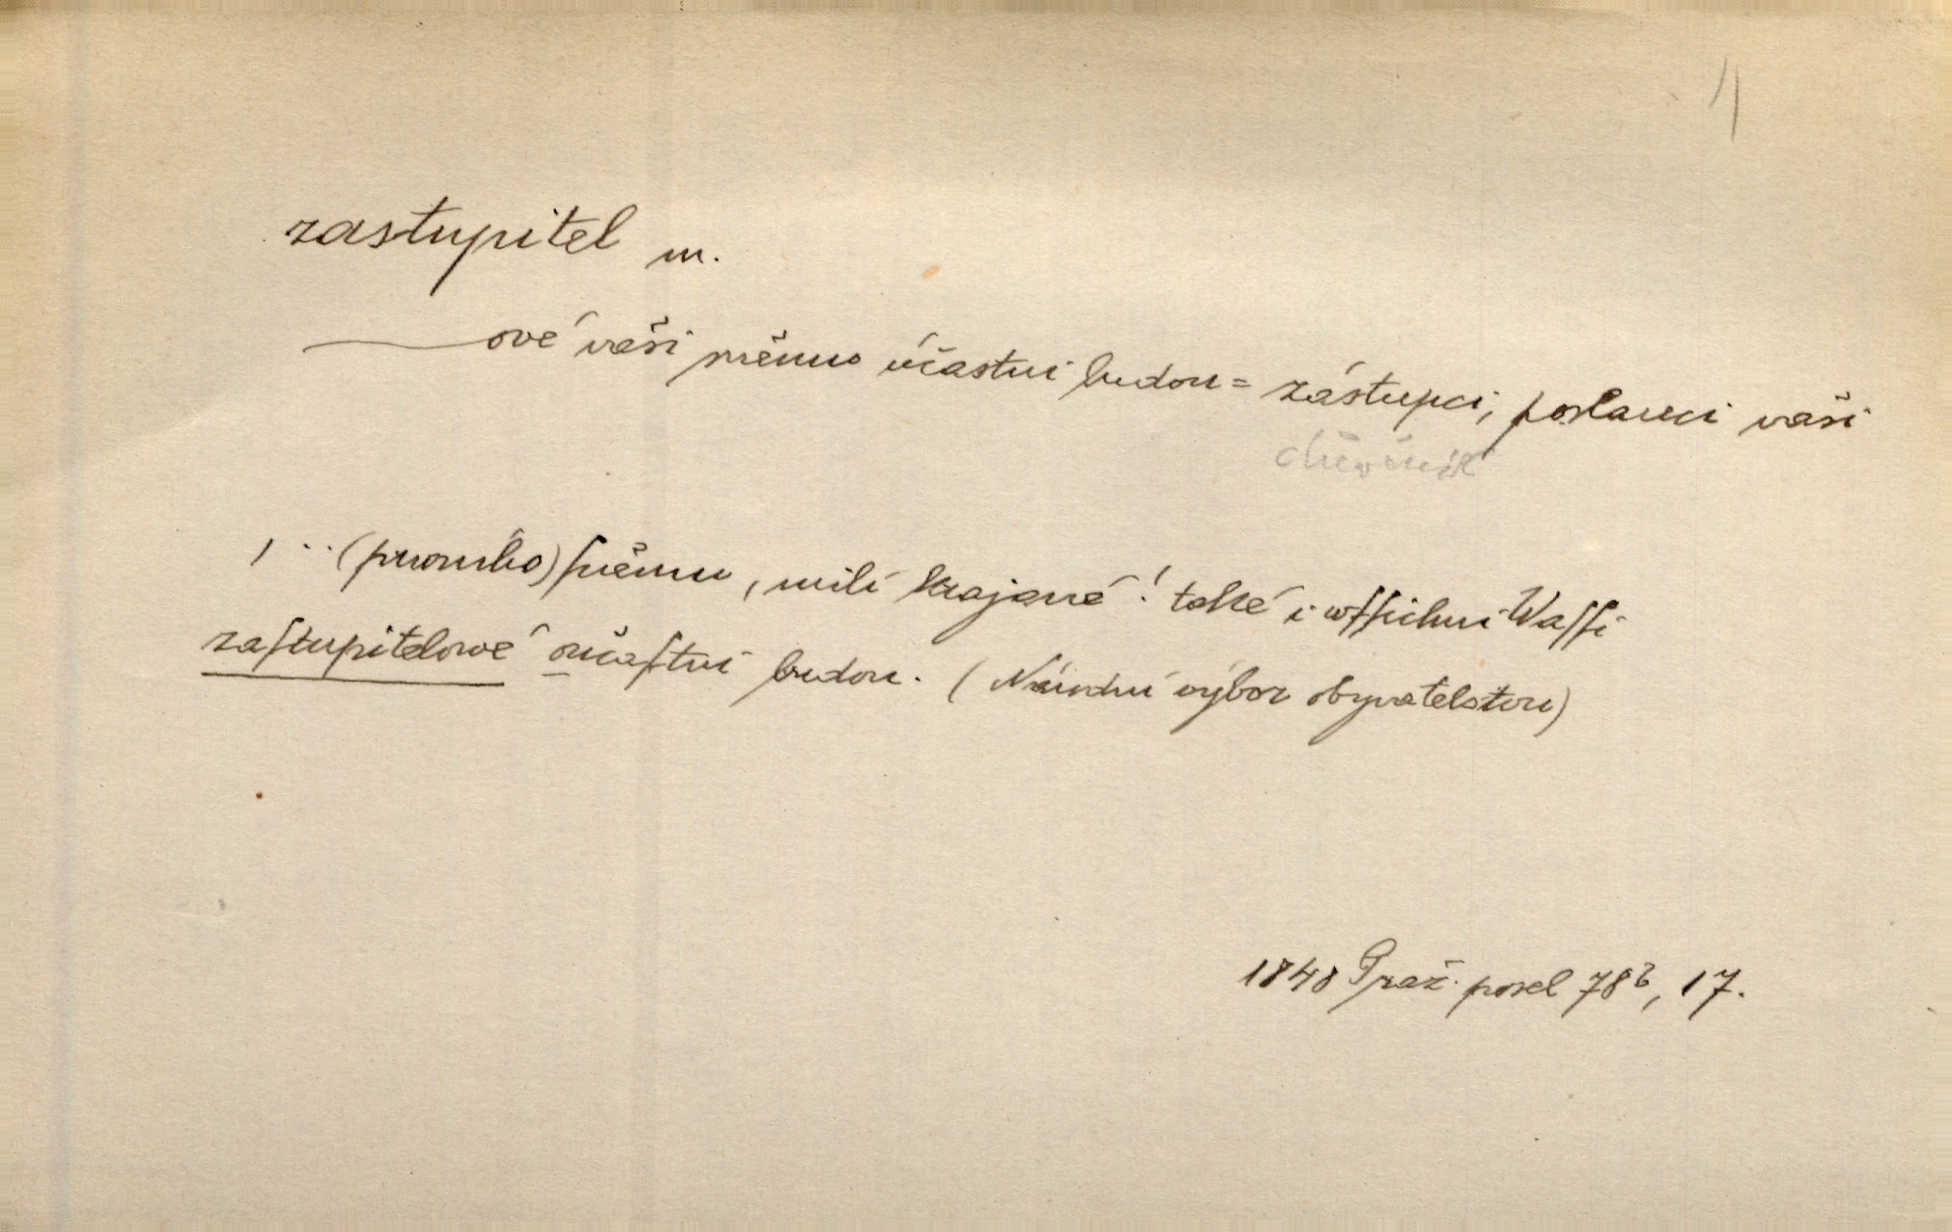 zastupitel m.
——ové vaši sněmu účastni budou = zástupci, poslanci vaši
důvěník
, .. (prvního) ſněmu, milí krajané! také i wſſichni Waſſi
zaſtupitelowé oučaſtni budou. (Národní výbor obyvatelstvu)
1848 Praž. posel 78b, 17.